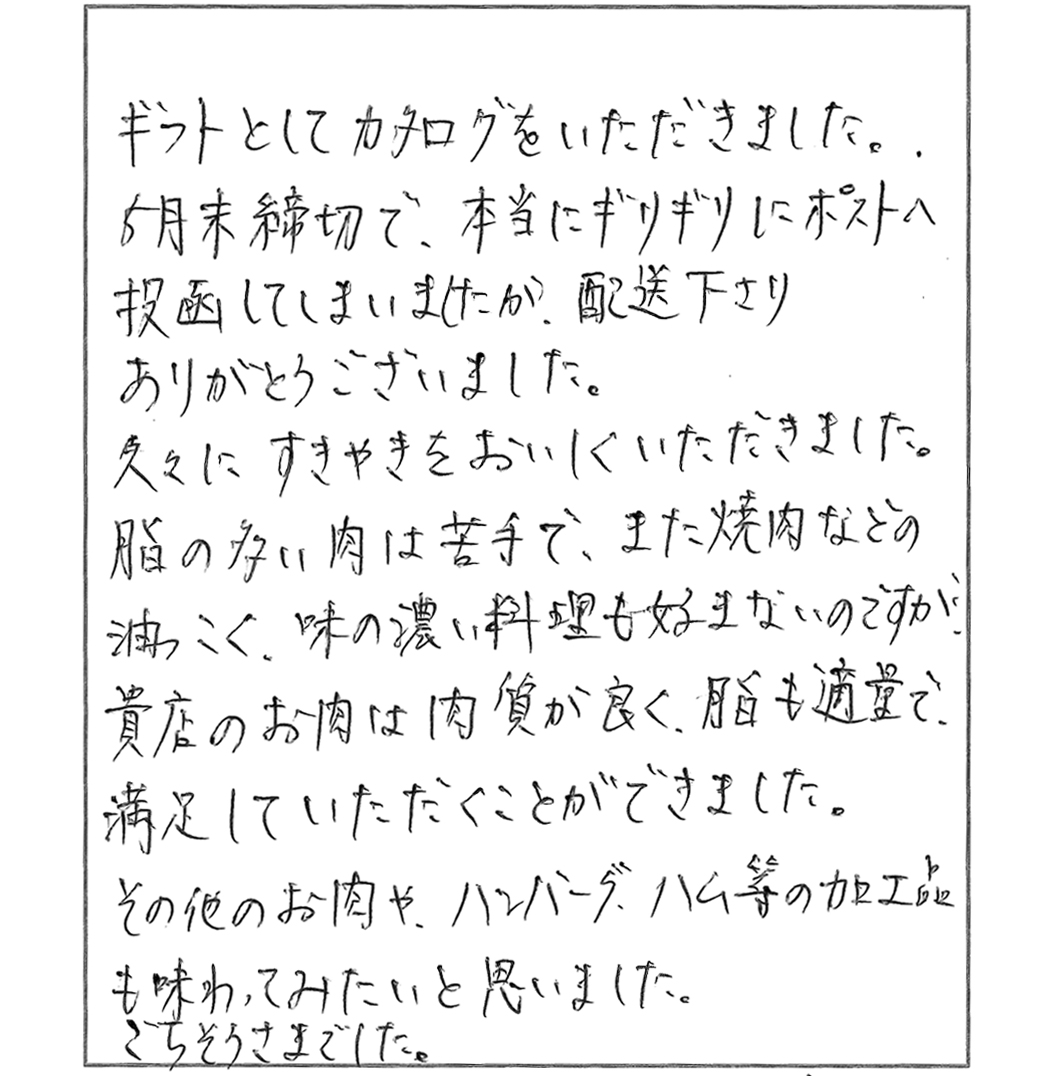 ギフトとしてカタログをいただきました。
5月末締切で、本当にギリギリにポストへ
投函してしまいましたが、配送下さり
ありがとうございました。
久々にすきやきをおいしくいただきました。
脂の多い肉は苦手で、また焼肉などの
油っこく、味の濃い料理も好まないのですが、
貴店のお肉は肉質が良く、脂も適量で、
満足していただくことができました。
その他のお肉や、ハンバーグ、ハム等の加工品
も味わってみたいと思いました。
ごちそうさまでした。